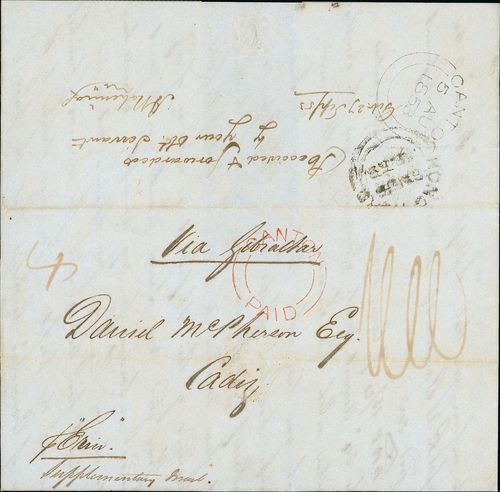 Received & forwarded
by your Obt. Servant
CANT
5 AUG
185
HONG
Via Gibraltar
CANTON
PAID
4
Daniel McPherson Esq.
Cadiz
p "Erin".
Supplementary Mail.